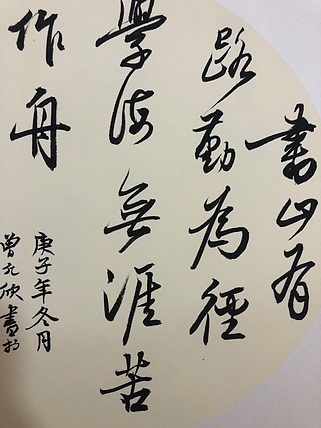 書山有
路勤為徑
學海無涯苦
作舟
庚子年冬月
曾
書於